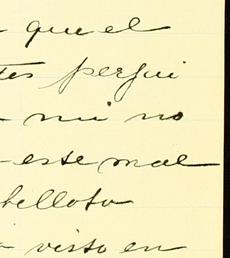 que el
tes perjui
mi no
este mal
bellota
visto en